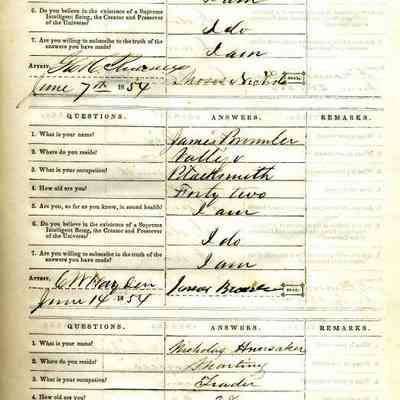 I am
6. Do you believe in the existence of a Supreme
Intelligent Being, the Creator and Preserver
of the Universe?
I do
7. Are you willing to subscribe to the truth of the
answers you have made?
I am
ATTEST,
SEAL.
June 7th 1854
QUESTIONS. ANSWERS. REMARKS.
1. What is your name? James
2. Where do you reside?
3. What is your occupation? Blacksmith
4. How old are you? Forty two
5. Are you, so far as you know, in sound health? I am
6. Do you believe in the existence of a Supreme
Intelligent Being, the Creator and Preserver
of the Universe?
I do
7. Are you willing to subscribe to the truth of the
answers you have made?
I am
ATTEST, C W Hayden James SEAL.
June 14 1854
QUESTIONS. ANSWERS. REMARKS.
1. What is your name? Nicholas Hunsaker
2. Where do you reside?
3. What is your occupation? Trader
4. How old are you?